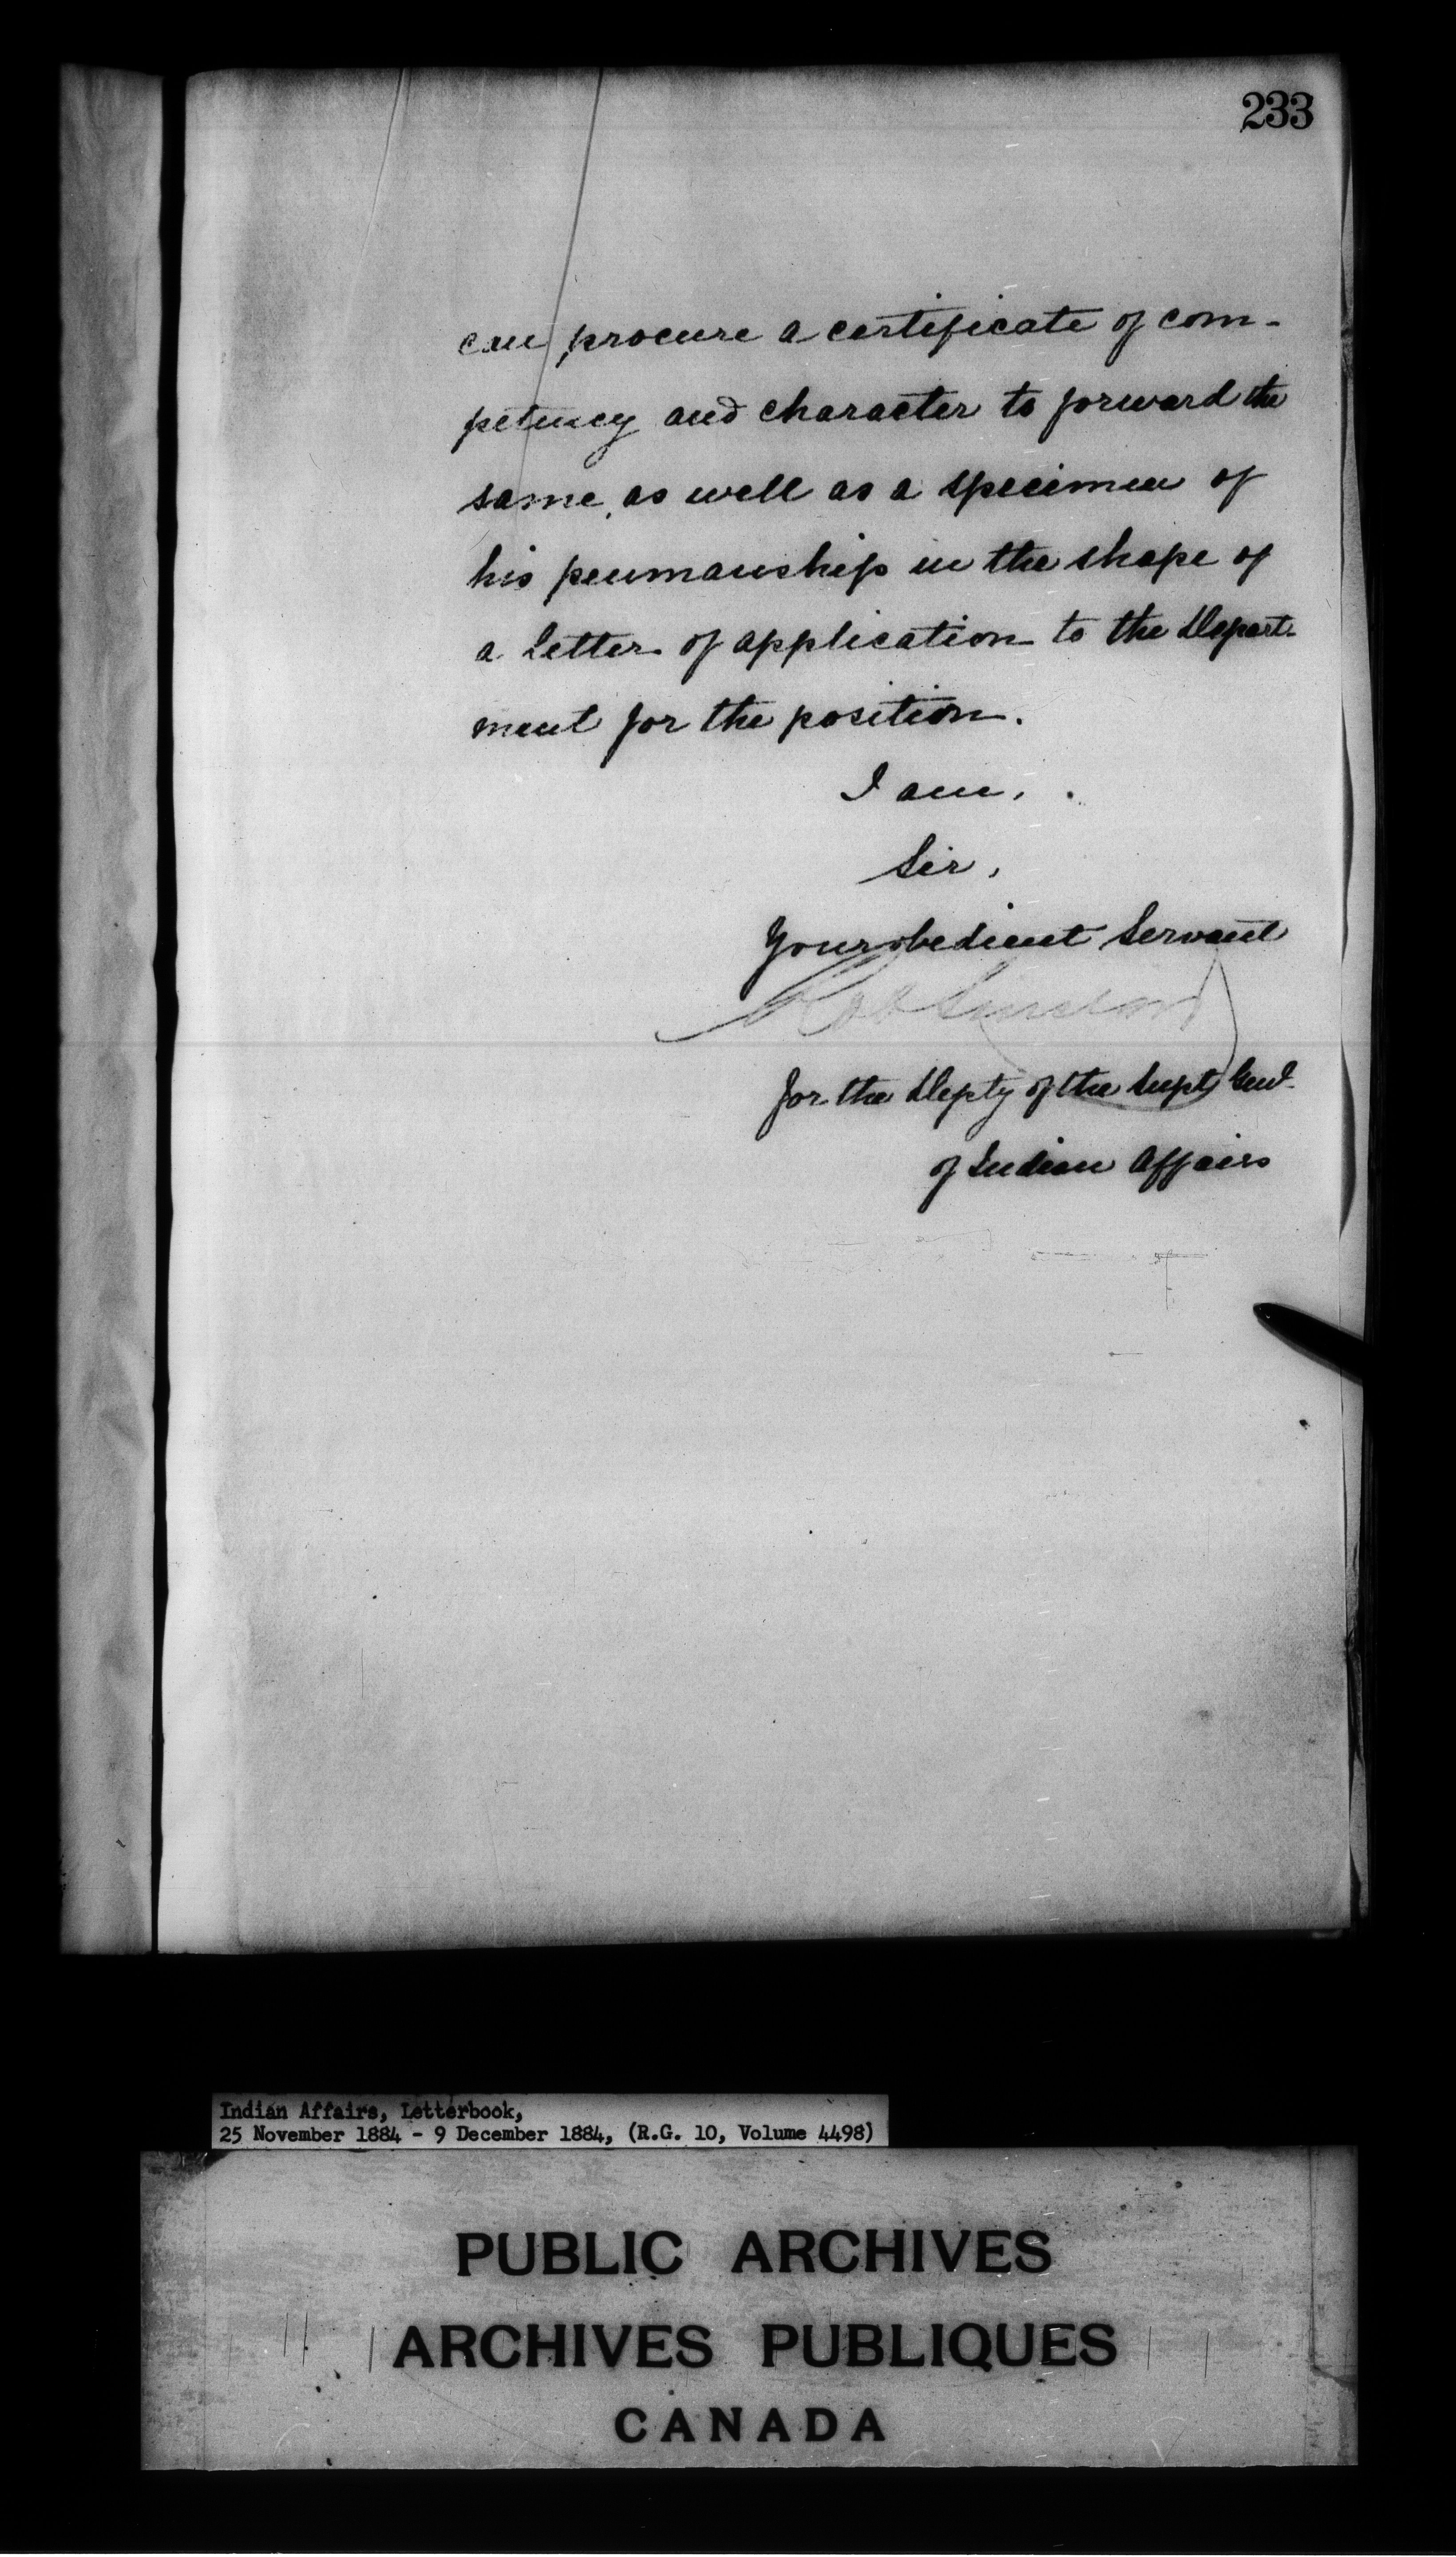 233
can procure a certificate of com-
petency and character to forward the
same, as well as a specimen of
his penmanship in the shape of
a letter of application to the Depart-
ment for the position.
I am,
Sir,
Your obedient Servant
for the Depty of the Supt Genl
of Indian Affairs
Indian Affairs, Letterbook,
25 November 1884 - 9 December 1884, (R.G. 10, Volume 4498)
PUBLIC ARCHIVES
ARCHIVES PUBLIQUES
CANADA